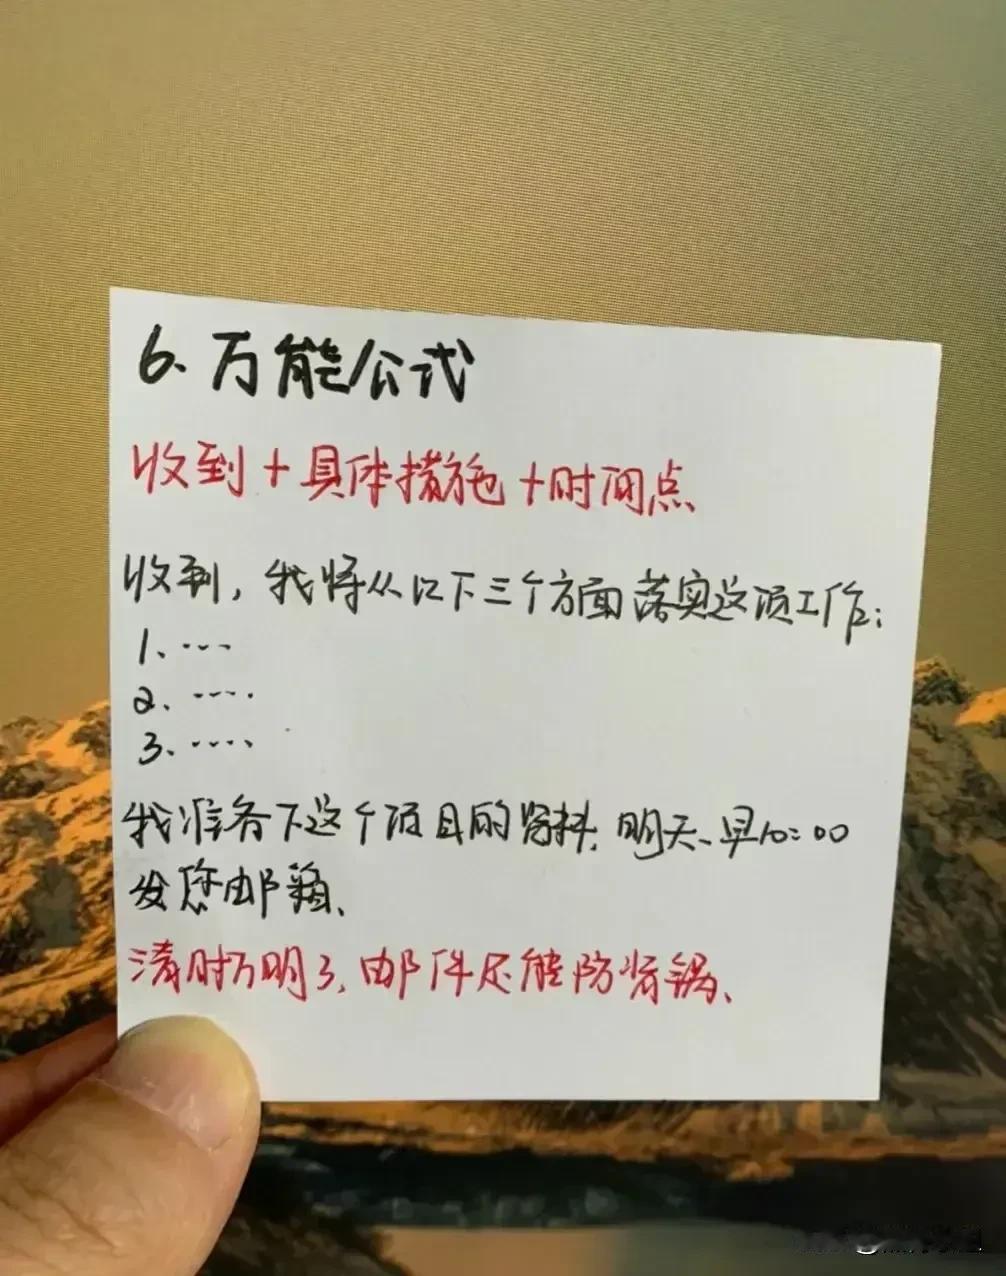 6.万能公式
收到+具体措施+时间点
收到,我将从以下三个方面落实这项工作:
1、····
2、····
3、····
我准备下这个项目的资料、明天、早10:00
发您邮箱、
清时万明了,邮件还能防背锅、